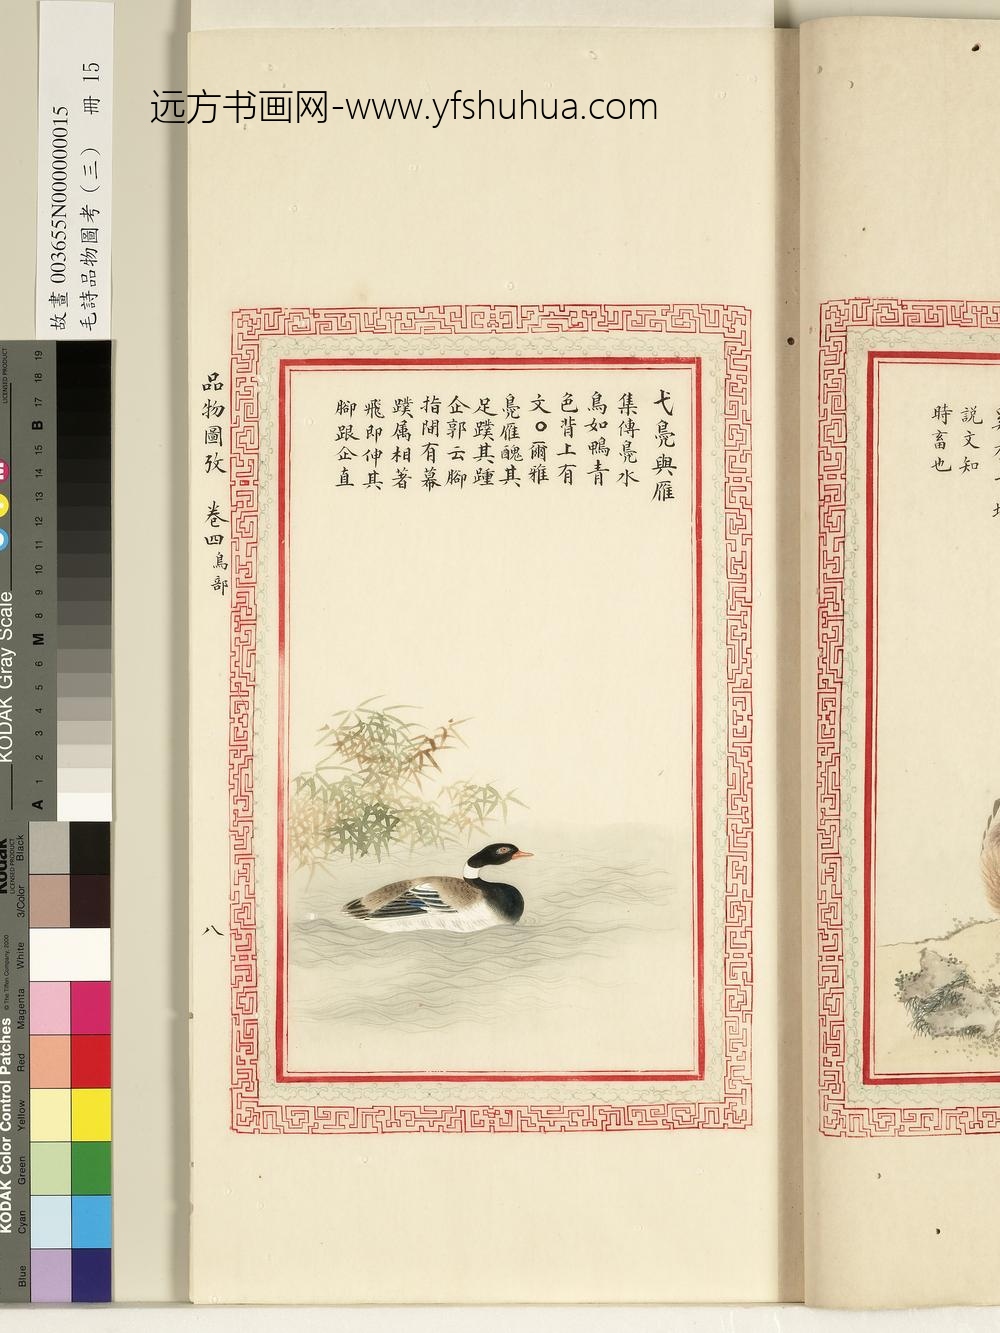 远方书画网-www.yfshuhua.com
故畫 003655N000000015
毛詩品物圖考（三） 冊 15
弋鳧與雁
集傳鳧水
鳥如鴨青
色背上有
文○爾雅
鳧雁醜其
足蹼其踵
企郭云腳
指間有幕
蹼属相著
飛即伸其
腳跟企直
品物圖攷 卷四鳥部
八
説文知
時畜也
KODAK Gray Scale
A 1 2 3 4 5 6 M 8 9 10 11 12 13 14 15 B 17 18 19
LICENSED PRODUCT
Kodak
LICENSED PRODUCT
KODAK Color Control Patches
© The Tiffen Company, 2000
Blue Cyan Green Yellow Red Magenta White 3/Color Black